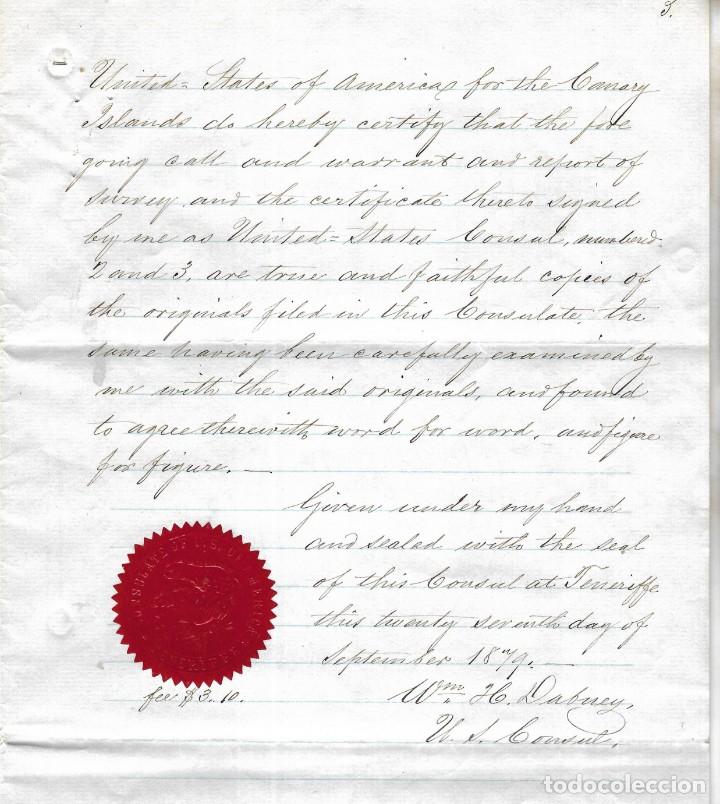 United=States of America for the Canary
Islands do hereby certify that the fore
going call and warrant and report of
survey and the certificate thereto signed
by me as United=States Consul, numbered
2 and 3, are true and faithful copies of
the originals filed in this Consulate, the
same having been carefully examined by
me with the said originals, and found
to agree therewith word for word, and figure
for figure.—
Given under my hand
and sealed with the seal
of this Consul at Teneriffe
this twenty seventh day of
September 1879.—
Wm H. Dabney,
U. S. Consul.
fee $3.10.
todocoleccion